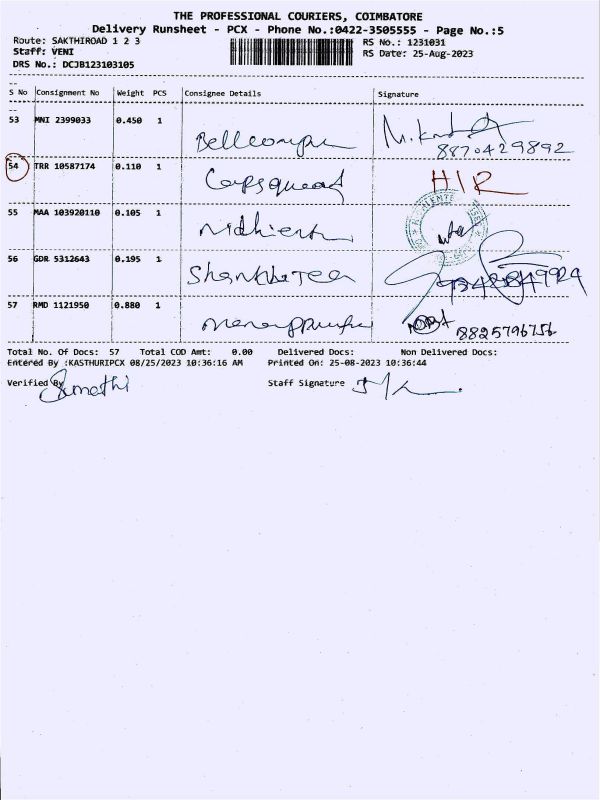 THE PROFESSIONAL COURIERS, COIMBATORE
Delivery Runsheet - PCX - Phone No.:0422-3505555 - Page No.:5
Route: SAKTHIROAD 1 2 3 RS No.: 1231031
Staff: VENI RS Date: 25-Aug-2023
DRS No.: DCJB123103105
S No Consignment No Weight PCS Consignee Details Signature
53 MNI 2399033 0.450 1
8870429892
54 TRR 10587174 0.110 1 H/R
55 MAA 103920110 0.105 1
56 GDR 5312643 0.195 1
57 RMD 1121950 0.880 1
8825796756
Total No. Of Docs: 57 Total COD Amt: 0.00 Delivered Docs: Non Delivered Docs:
Entered By :KASTHURIPCX 08/25/2023 10:36:16 AM Printed On: 25-08-2023 10:36:44
Verified By Sumathi Staff Signature